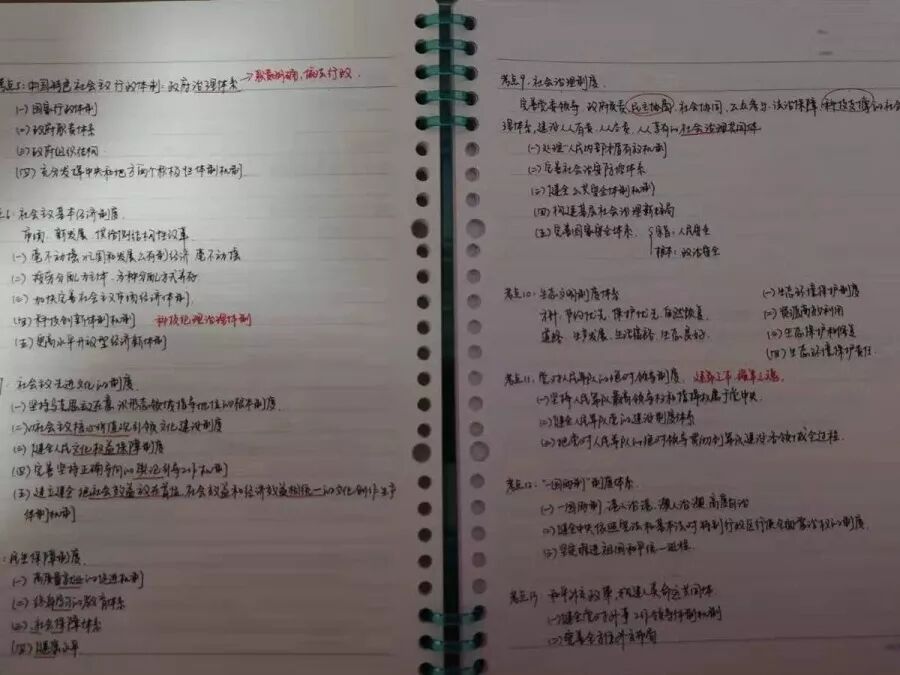 考点5:中国特色社会主义行政体制:政府治理体系 → 职责明确,依法行政
(一)国家行政体制
(二)政府职责体系
(三)政府组织结构
(四)充分发挥中央和地方两个积极性体制机制
6:社会主义基本经济制度.
市场、新发展、供给侧结构性改革
(一)毫不动摇巩固和发展公有制经济 毫不动摇
(二)按劳分配为主体,多种分配方式并存
(三)加快完善社会主义市场经济体制.
(四)科技创新体制机制 科技伦理治理体制
(五)更高水平开放型经济新体制
7.社会主义先进文化的制度.
(一)坚持马克思主义在意识形态领域指导地位的根本制度.
(二)以社会主义核心价值观引领文化建设制度
(三)健全人民文化权益保障制度
(四)完善坚持正确导向的舆论引导工作机制
(五)建立健全把社会效益放在首位、社会效益和经济效益相统一的文化创作生产
体制机制
:民生保障制度.
(一)高质量就业的促进机制
(二)终身学习的教育体系
(三)社会保障体系
(四)健康水平
考点9:社会治理制度.
完善党委领导、政府负责、民主协商、社会协同、公众参与、法治保障、科技支撑的社会
理体系,建设人人有责、人人尽责、人人享有的社会治理共同体
(一)处理人民内部矛盾有效机制
(二)完善社会治安防控体系
(三)健全公共安全体制机制
(四)构建基层社会治理新格局
(五)完善国家安全体系. 宗旨:人民安全
根本:政治安全
考点10:生态文明制度体系
方针:节约优先、保护优先、自然恢复.
道路:生产发展、生活富裕、生态良好.
(一)生态环境保护制度
(二)资源高效利用
(三)生态保护和修复
(四)生态环境保护责任
考点11:党对人民军队的绝对领导制度.
(一)坚持人民军队最高领导权和指挥权属于党中央.
(二)健全人民军队党的建设制度体系
(三)把党对人民军队的绝对领导贯彻到军队建设各领域全过程.
考点12:"一国两制"制度体系.
(一)一国两制、港人治港、澳人治澳、高度自治
(二)健全中央依照宪法和基本法对特别行政区行使全面管治权的制度.
(三)坚定推进祖国和平统一进程.
考点13 和平外交政策,构建人类命运共同体
(一)健全党对外事工作领导体制机制
(二)完善全方位外交布局